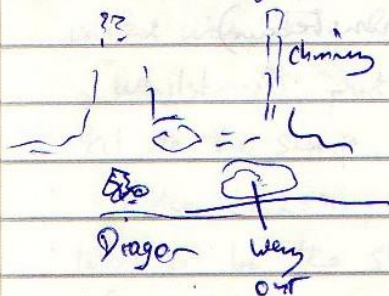 ??
chimney
Dragon
way
out